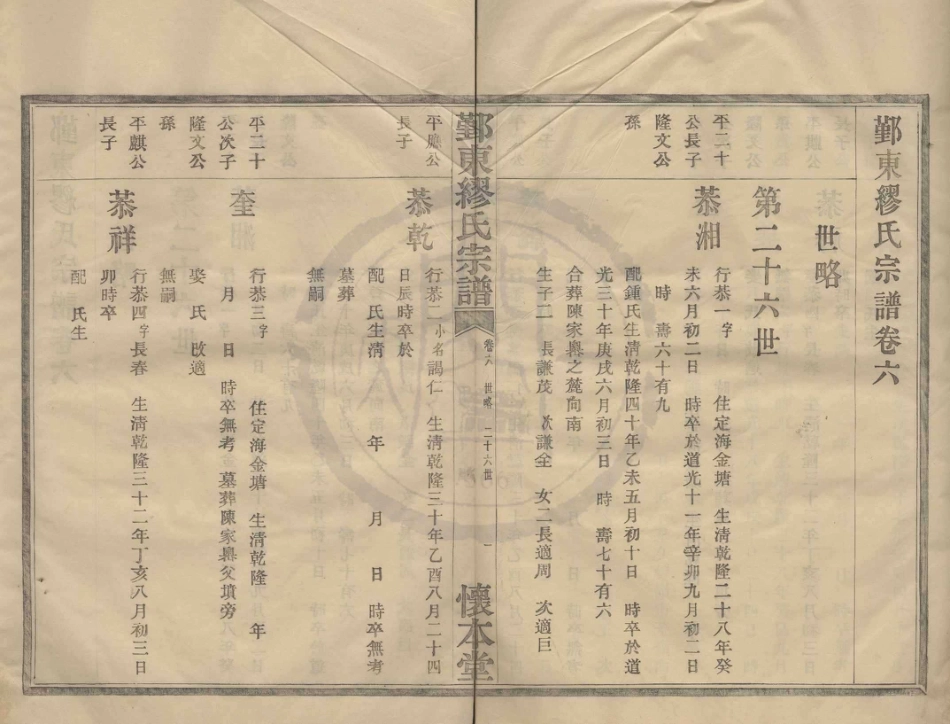 鄞東繆氏宗譜卷六
世略
第二十六世
平二十
公長子
隆文公
孫
恭湘
行恭一字　住定海金塘　生清乾隆二十八年癸
未六月初二日　時卒於道光十一年辛卯九月初二日
時　壽六十有九
配鍾氏生清乾隆四十年乙未五月初十日　時卒於道
光三十年庚戌六月初三日　時　壽七十有六
合葬陳家㠘之麓向南
生子二　長謙茂　次謙全　女二長適周　次適巨
鄞東繆氏宗譜
卷六　世略　二十六世
一
懷本堂
平應公
長子
恭乾
行恭二小名謁仁　生清乾隆三十年乙酉八月二十四
日辰時卒於
配　氏生清　年　月　日　時卒無考
墓葬
無嗣
平二十
公次子
隆文公
孫
奎
行恭三字　住定海金塘　生清乾隆　年
月　日　時卒無考　墓葬陳家㠘父墳旁
娶　氏　改適
無嗣
平麒公
長子
恭祥
行恭四字長春　生清乾隆三十二年丁亥八月初三日
卯時卒
配　氏生